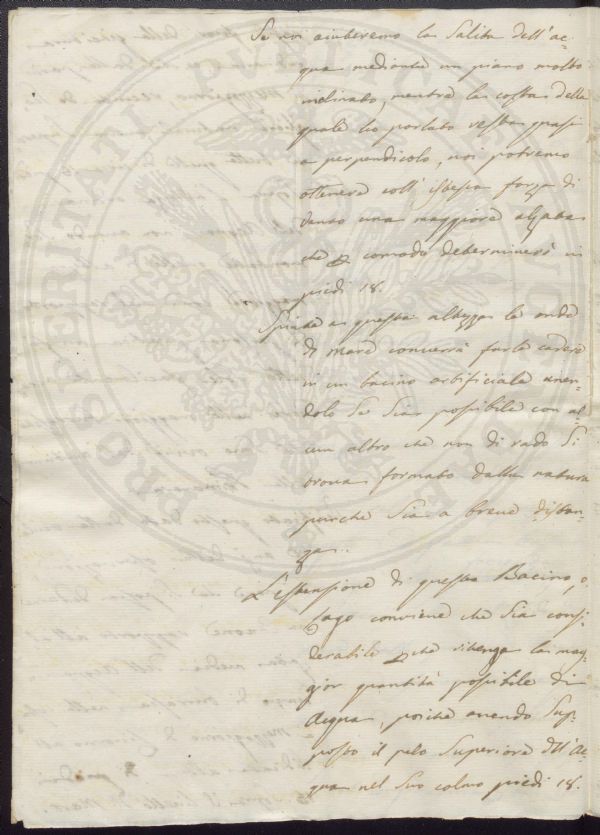 Se noi aiuteremo la Salita dell'ac-
qua mediante un piano molto
inclinato, mentre la costa delle
quale ho parlato resta quasi
a perpendicolo, noi potremo
ottenere coll'istessa forza di
vento una maggiore alzata
che comodo determinerò in
piedi 18.
Spinte a questa altezza le onde
di mare converrà farle cadere
in un bacino artificiale unen-
dolo Se Sia possibile con al-
cun altro che non di rado Si
trova formato dalla natura
purche Sia a breve distan-
za.
L'estensione di questo Bacino, o
Lago conviene che Sia consi-
derabile che ritenga la mag-
gior quantità possibile di
Acqua, poiche avendo Sup-
posto il pelo Superiore dell'Ac-
qua nel Suo colmo piedi 18.
PROSPERITATI PUBLICAE